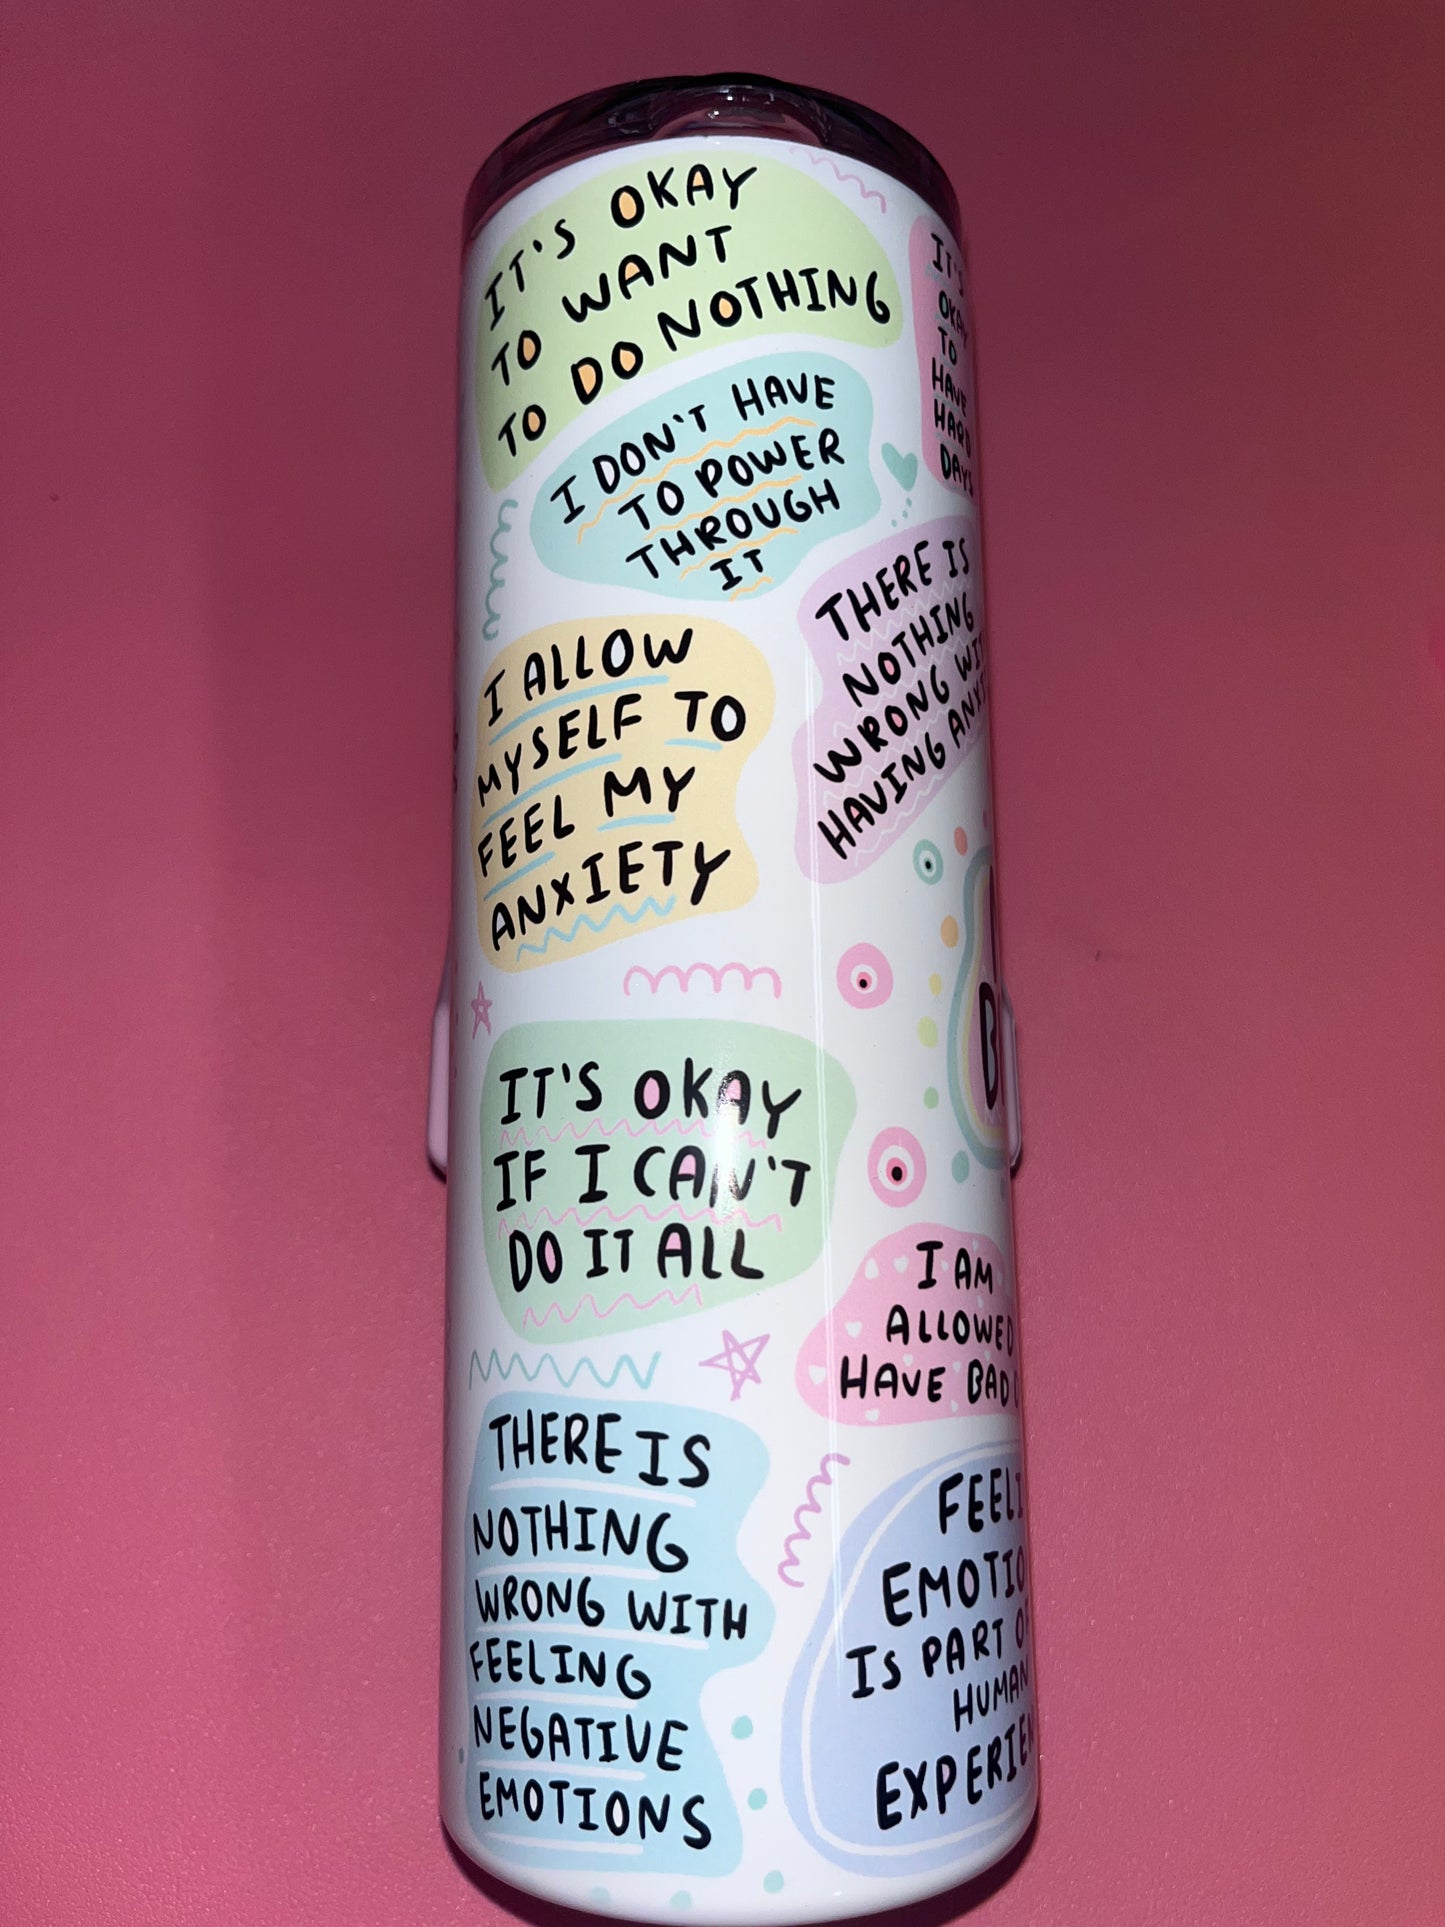 IT'S OKAY
TO WANT
TO DO NOTHING
IT'S
OKAY
TO
HAVE
HARD
DAYS
I DON'T HAVE
TO POWER
THROUGH
IT
THERE IS
NOTHING
WRONG
HAVING
I ALLOW
MYSELF TO
FEEL MY
ANXIETY
IT'S OKAY
IF I CAN'T
DO IT ALL
I AM
ALLOWED
HAVE BAD
THERE IS
NOTHING
WRONG WITH
FEELING
NEGATIVE
EMOTIONS
IS PART
HUMAN